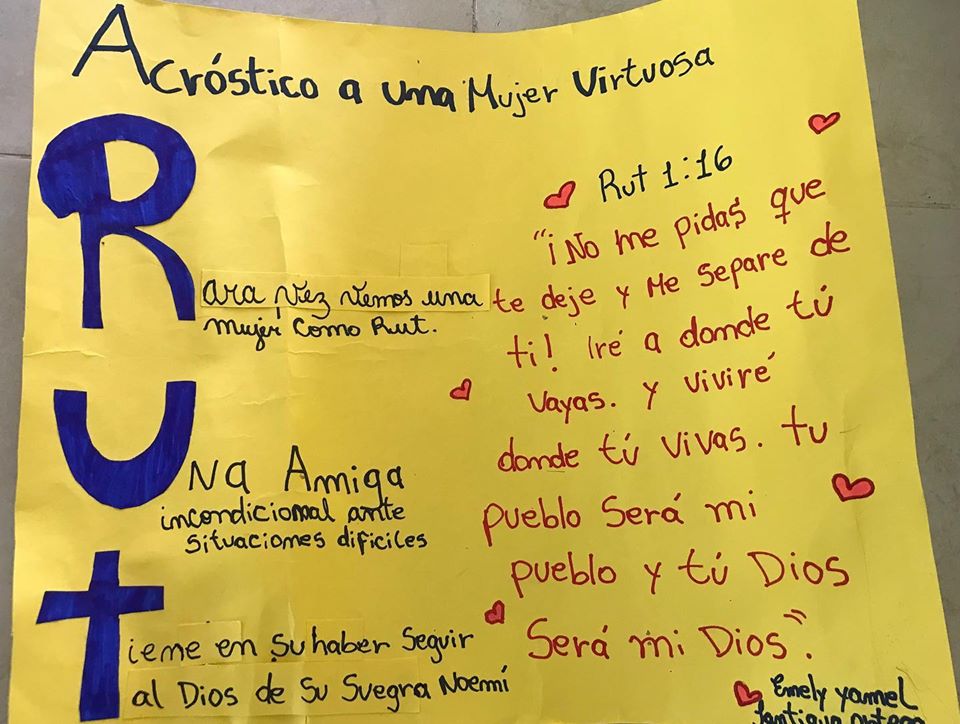 Acróstico a una Mujer Virtuosa
Rara vez vemos una
mujer como Rut.
Una Amiga
incondicional ante
situaciones dificiles
tiene en su haber Seguir
al Dios de Su Suegra Noemí
Rut 1:16
"¡No me pidas que
te deje y Me Separe de
ti! Iré a donde tú
vayas. y viviré
donde tú vivas. tu
pueblo Será mi
pueblo y tú Dios
Será mi Dios".
Emely yamel